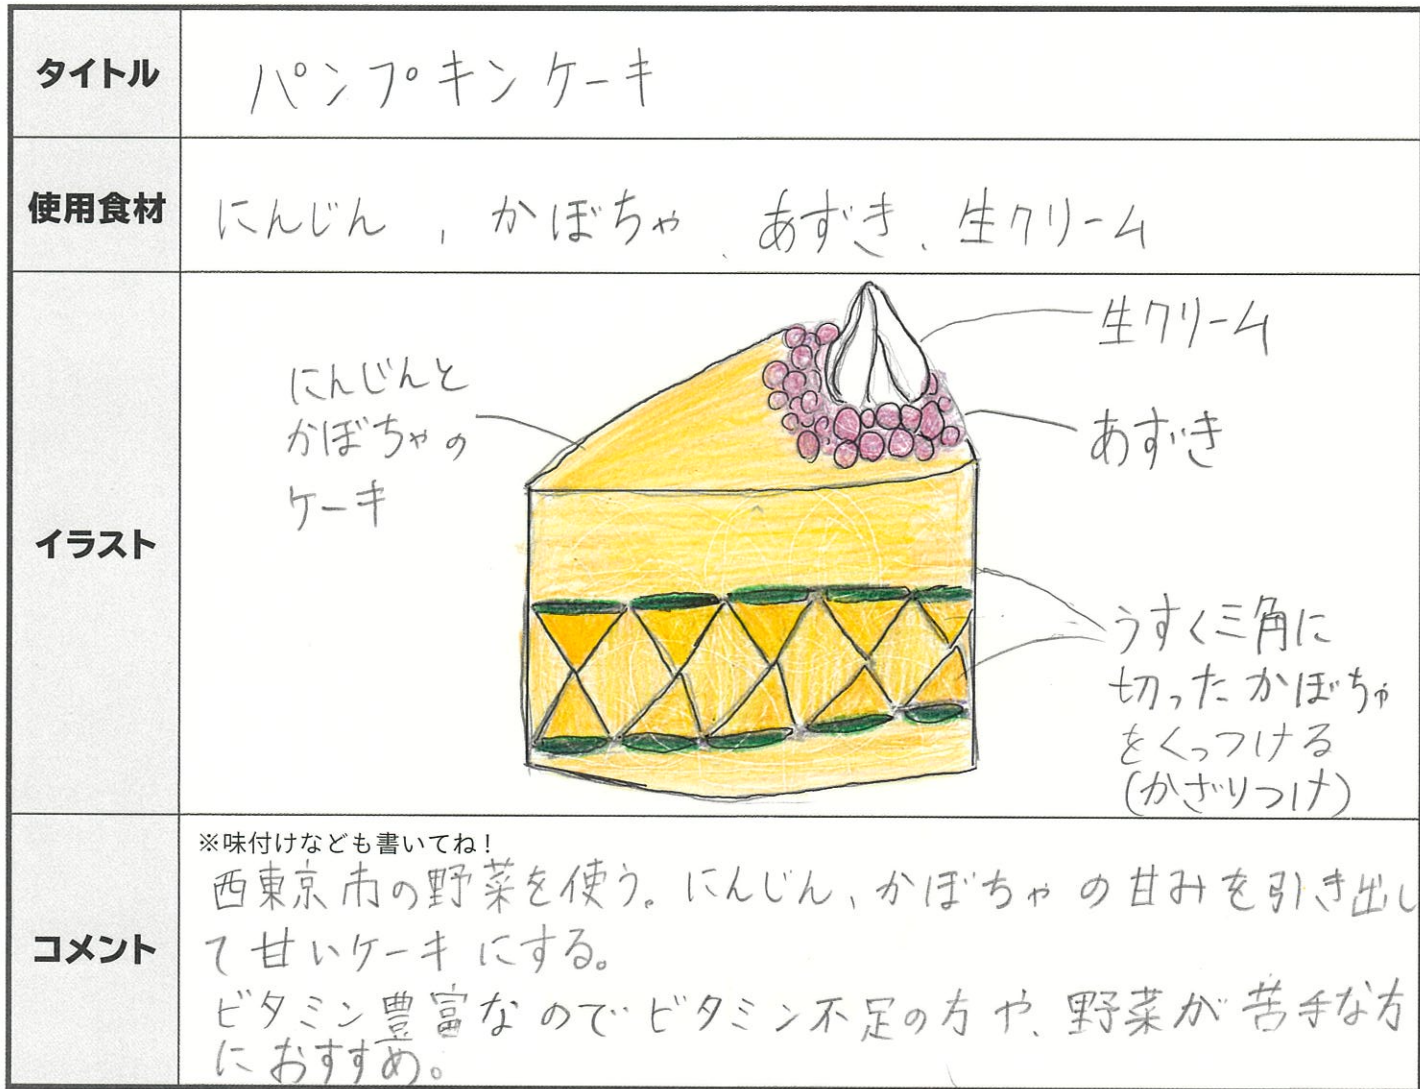 タイトル
パンプキンケーキ
使用食材
にんじん、かぼちゃ、あずき、生クリーム
イラスト
にんじんと
かぼちゃの
ケーキ
生クリーム
あずき
うすく三角に
切ったかぼちゃ
をくっつける
(かざりつけ)
コメント
※味付けなども書いてね!
西東京市の野菜を使う。にんじん、かぼちゃの甘みを引き出し
て甘いケーキにする。
ビタミン豊富なのでビタミン不足の方や、野菜が苦手な方
におすすめ。